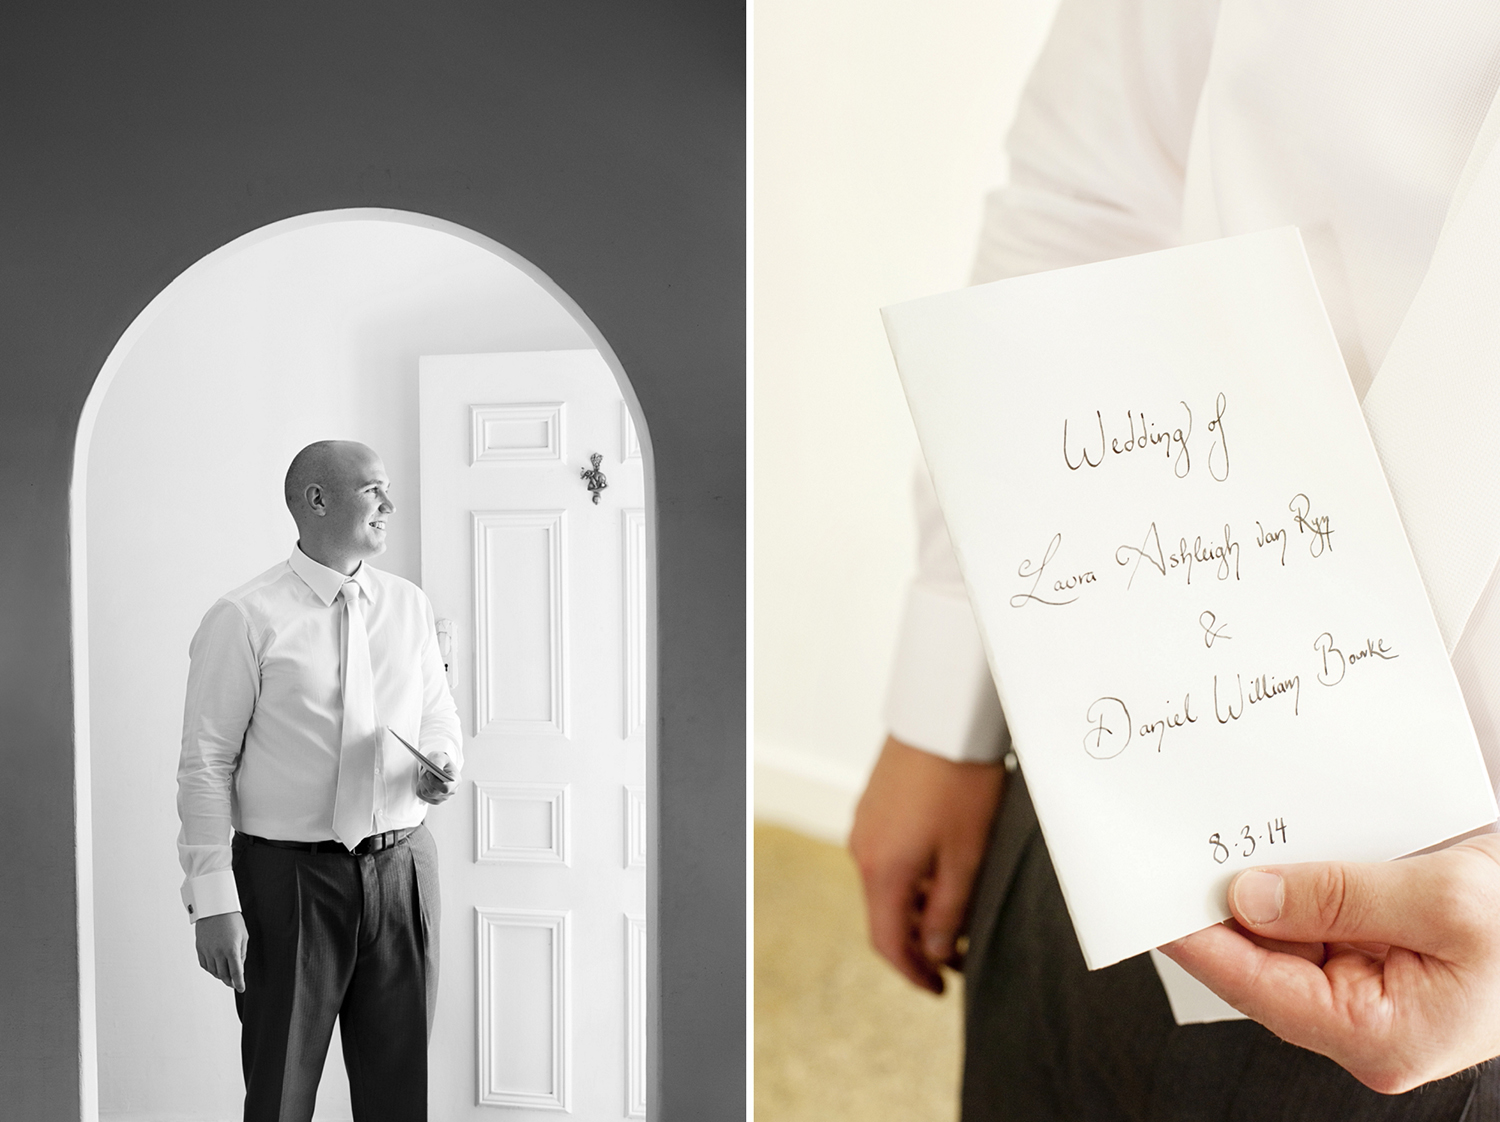 Wedding of
Laura Ashleigh van Ryy
&
Daniel William Bourke
8.3.14